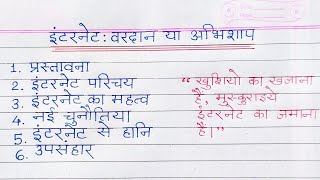 इंटरनेट : वरदान या अभिशाप
1. प्रस्तावना
2. इंटरनेट परिचय
3. इंटरनेट का महत्व
4. नई चुनौतिया
5. इंटरनेट से हानि
6. उपसंहार
“ खुशियो का खजाना
है, मुस्कुराइये
इंटरनेट का जमाना
है।”